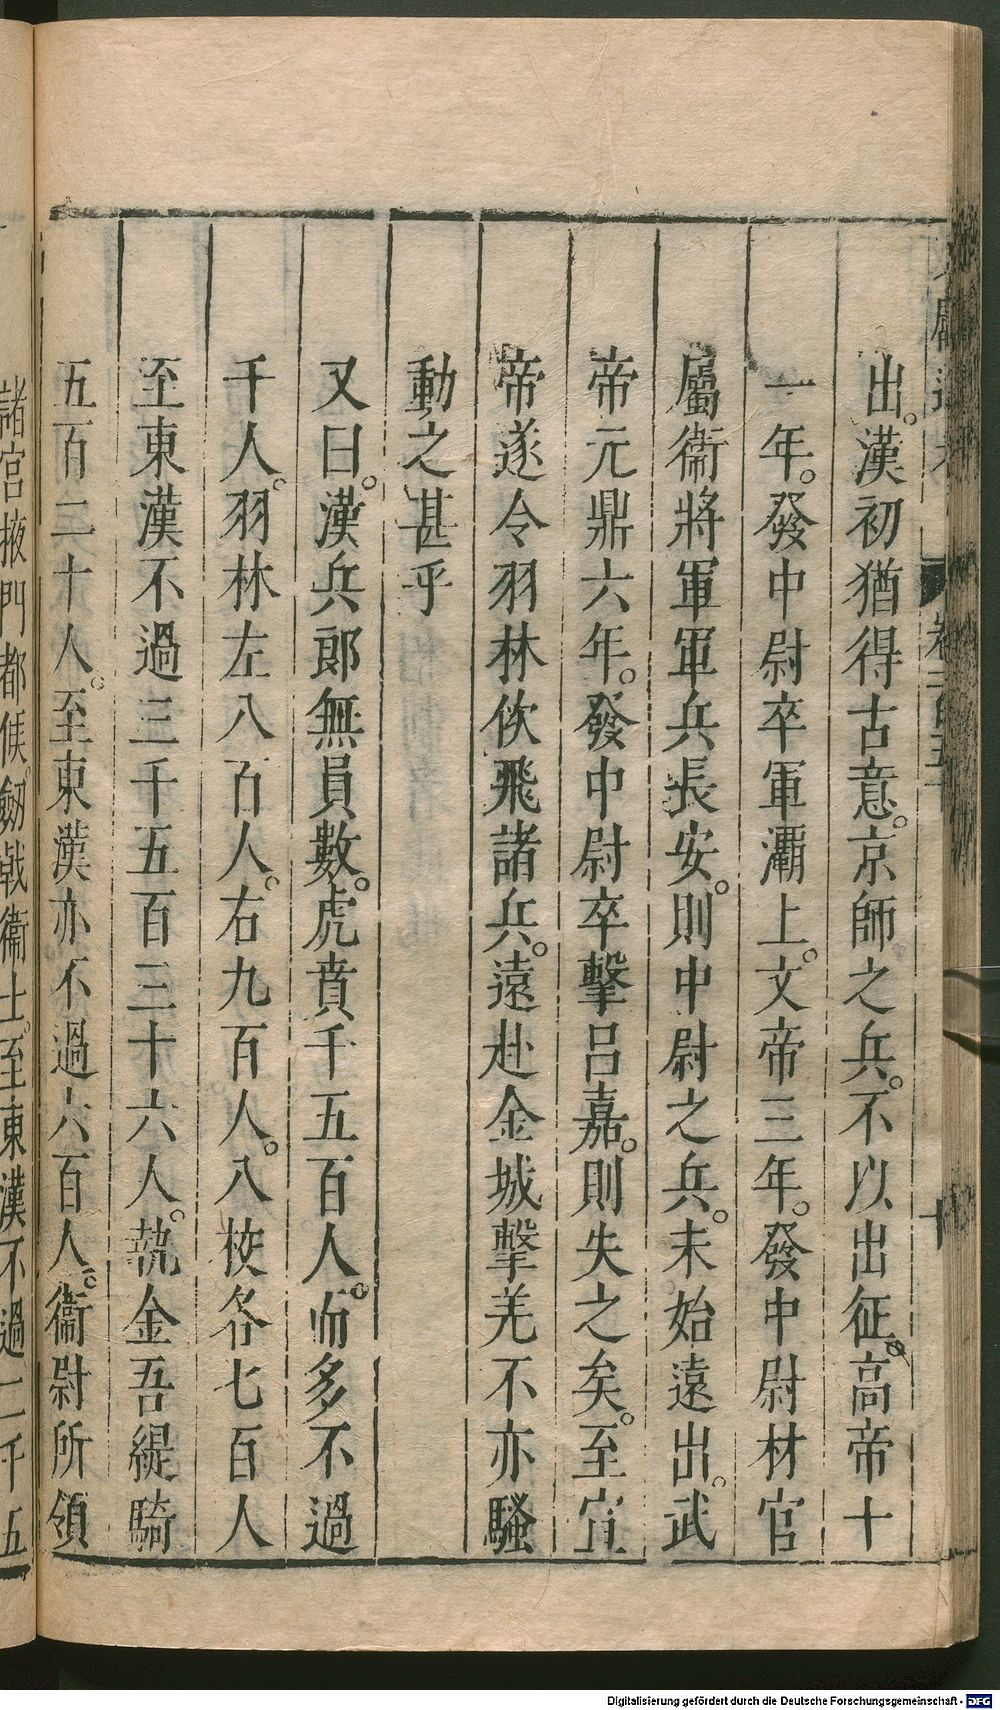 出。漢初猶得古意。京師之兵。不以出征。高帝十
一年。發中尉卒軍灞上。文帝三年。發中尉材官
屬衞將軍軍兵長安。則中尉之兵。未始遠出。武
帝元鼎六年。發中尉卒擊呂嘉。則失之矣。至宣
帝遂令羽林佽飛諸兵。遠赴金城擊羌不亦騷
動之甚乎
又曰。漢兵郎無員數。虎賁千五百人。而多不過
千人。羽林左八百人。右九百人。八校各七百人
至東漢不過三千五百三十六人。執金吾緹騎
五百二十人。至東漢亦不過六百人。衞尉所領
諸宮掖門都候劒戟衞士。至東漢不過二千五
Digitalisierung gefördert durch die Deutsche Forschungsgemeinschaft - DFG